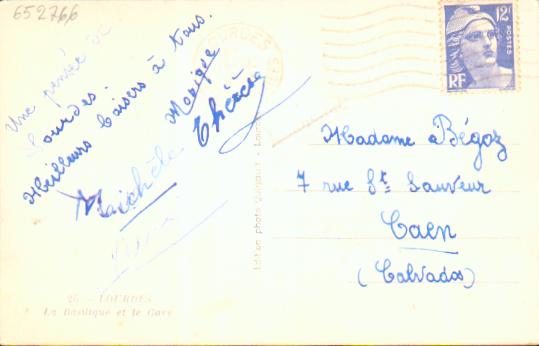 652766
Une pensée de
Lourdes.
Meilleurs baisers à tous.
Monique
Michèle Thérèse
26 - LOURDES
La Basilique et le Gave
Edition photo
LOURDES
12F
POSTES
RF
Madame Bégoz
7 rue St Sauveur
Caen
(Calvados)